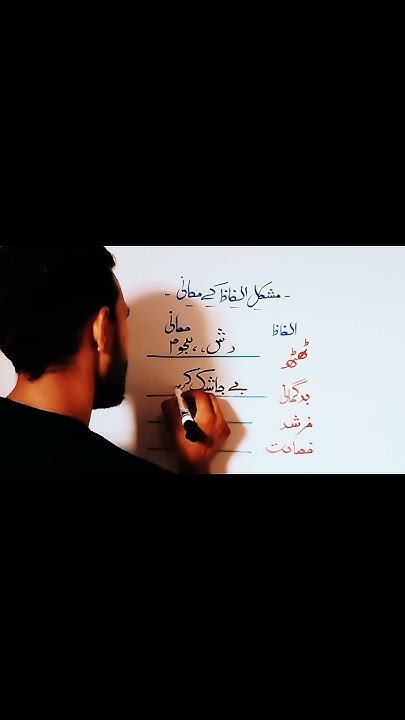 - مشکل الفاظ کے معانی -
الفاظ معانی
ٹھٹھ رش، ہجوم
بدگمانی بے جا شک کر
مرشد
فصاحت